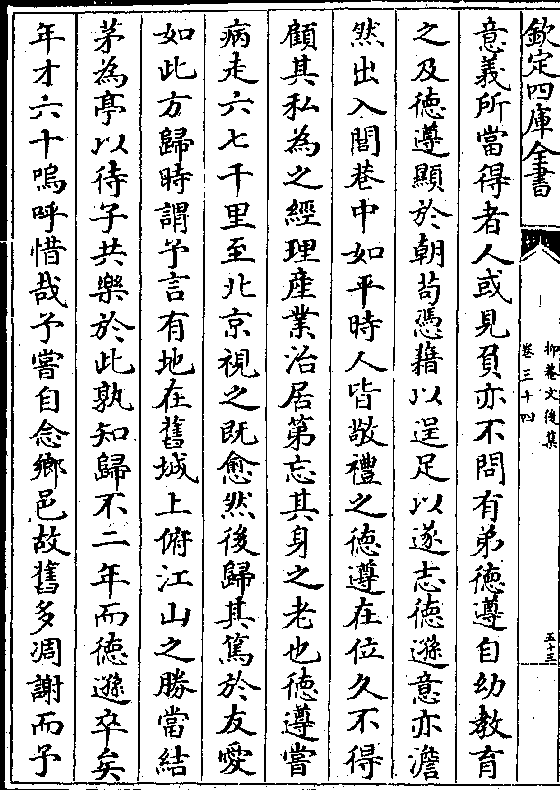 欽定四庫全書
抑菴文後集
卷三十四
五十三
意義所當得者人或見負亦不問有弟徳遵自幼教育
之及徳遵顯於朝茍憑藉以逞足以遂志徳遜意亦澹
然出入閭巷中如平時人皆敬禮之徳遵在位久不得
顧其私為之經理産業治居第忘其身之老也徳遵嘗
病走六七千里至北京視之既愈然後歸其篤於友愛
如此方歸時謂予言有地在舊城上俯江山之勝當結
茅為亭以待子共樂於此孰知歸不二年而徳遜卒矣
年才六十嗚呼惜哉予嘗自念鄉邑故舊多凋謝而予